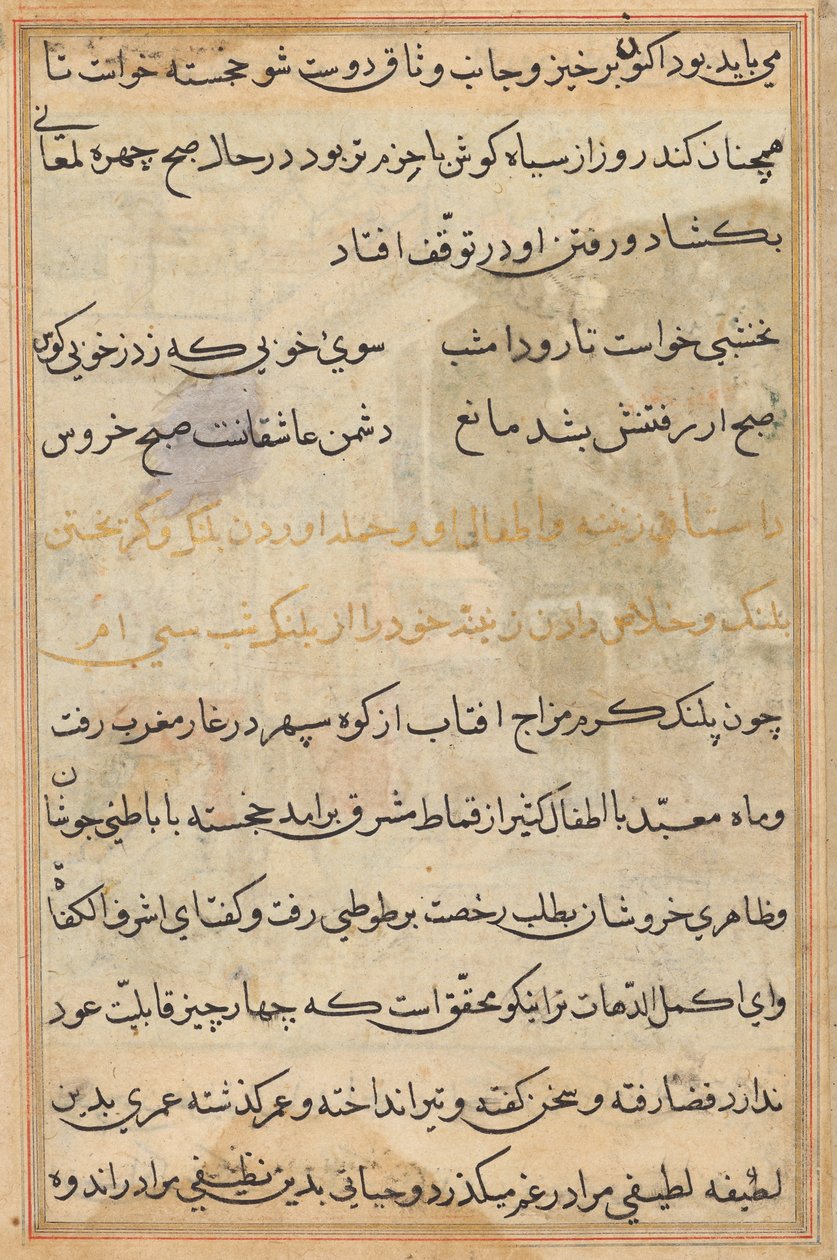 می باید بود اکنون برخیز و جانب وثاق دوست شو خجسته خواست تا
همچنان کند روز از سیاه کوش با حزم تر بود در حال صبح چهره لمعانی
بکشاد و رفتن او در توقّف افتاد
نخشبی خواست تا رود امشب سوئ خوبی که زد ز خوبی کوس
صبح از رفتنش بشد مانع دشمن عاشقانست صبح خروس
داستان زن و اطفال او و حمله اوردن پلنک و کریختن
پلنک و خلاص دادن زن خود را از پلنک شب سی ام
چون پلنک کرم مزاج افتاب از کوه سپهر در غار مغرب رفت
و ماه معبّد با اطفال کثیر از قماط مشرق برامد خجسته با باطنی جوشان
و ظاهری خروشان بطلب رخصت بر طوطی رفت و کفت ای اشرف الکفاة
و ای اکمل الدّهات ترا نیکو محقّق است که چهار چیز قابلیّت عود
ندارد قضا رفته و سخن کفته و تیر انداخته و عمر کذشته عمری بدین
لطیفه لطیفی مرا در غم میکذرد و حیاتی بدین نظیفی مرا در اندوه